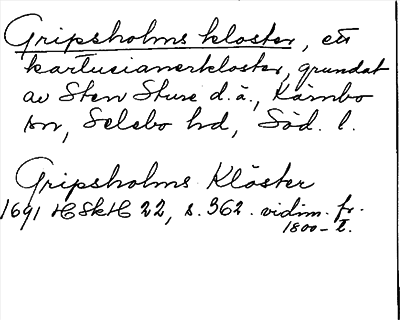 Gripsholms kloster, ett
kartusianerkloster, grundat
av Sten Sture d.ä., Kärnbo
sn, Selebo hd, Söd. l.
Gripsholms Klöster
1691 HSkH 22, s. 362. vidim. fr.
1800-t.